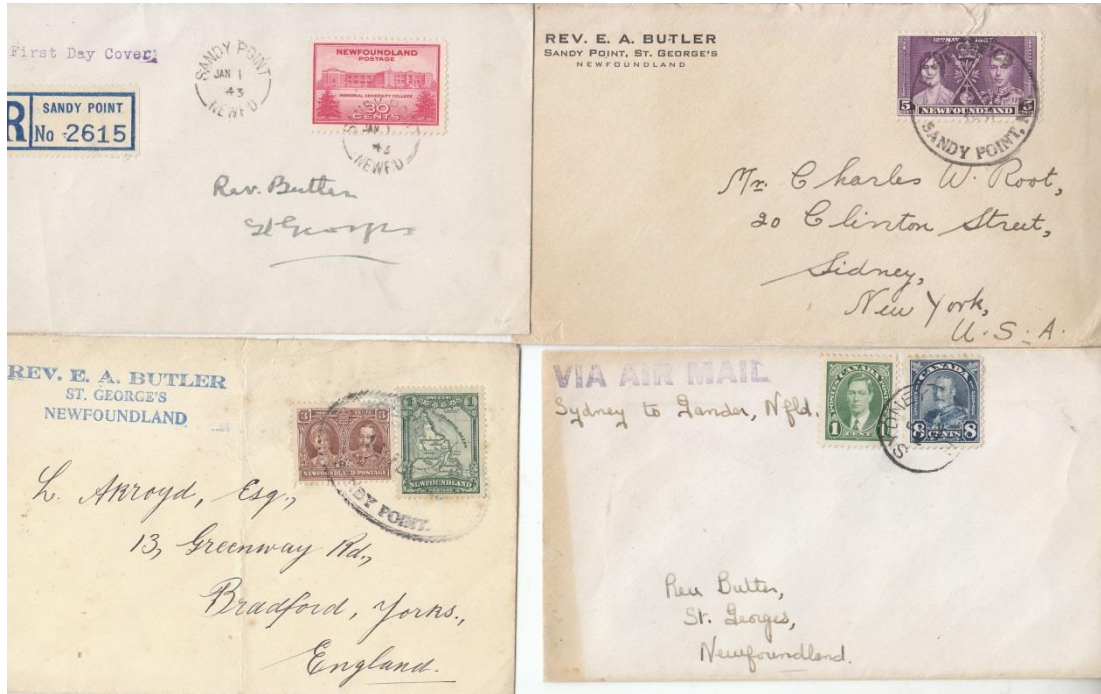 First Day Cover
SANDY POINT
JAN 1
43
NEWF'D
NEWFOUNDLAND
POSTAGE
MEMORIAL UNIVERSITY COLLEGE
30
CENTS
JAN 1
43
NEWF'D
R
SANDY POINT
No 2615
Rev. Butler
St Georges
REV. E. A. BUTLER
SANDY POINT, ST. GEORGE'S
NEWFOUNDLAND
5 5
NEWFOUNDLAND
SANDY POINT, N
Mr. Charles W. Root,
20 Clinton Street,
Sidney,
New York,
U.S.A.
REV. E. A. BUTLER
ST. GEORGE'S
NEWFOUNDLAND
3 3
NEWFOUNDLAND POSTAGE
1 ONE CENT 1
POSTAGE
NEWFOUNDLAND
SANDY POINT.
L. Akroyd, Esq.,
13, Greenway Rd.,
Bradford, Yorks.,
England.
VIA AIR MAIL
Sydney to Gander, Nfld.
POSTES CANADA POSTAGE
1 CENT 1
CANADA
8 CENTS 8
SYDNEY
Rev Butler,
St. Georges,
Newfoundland.